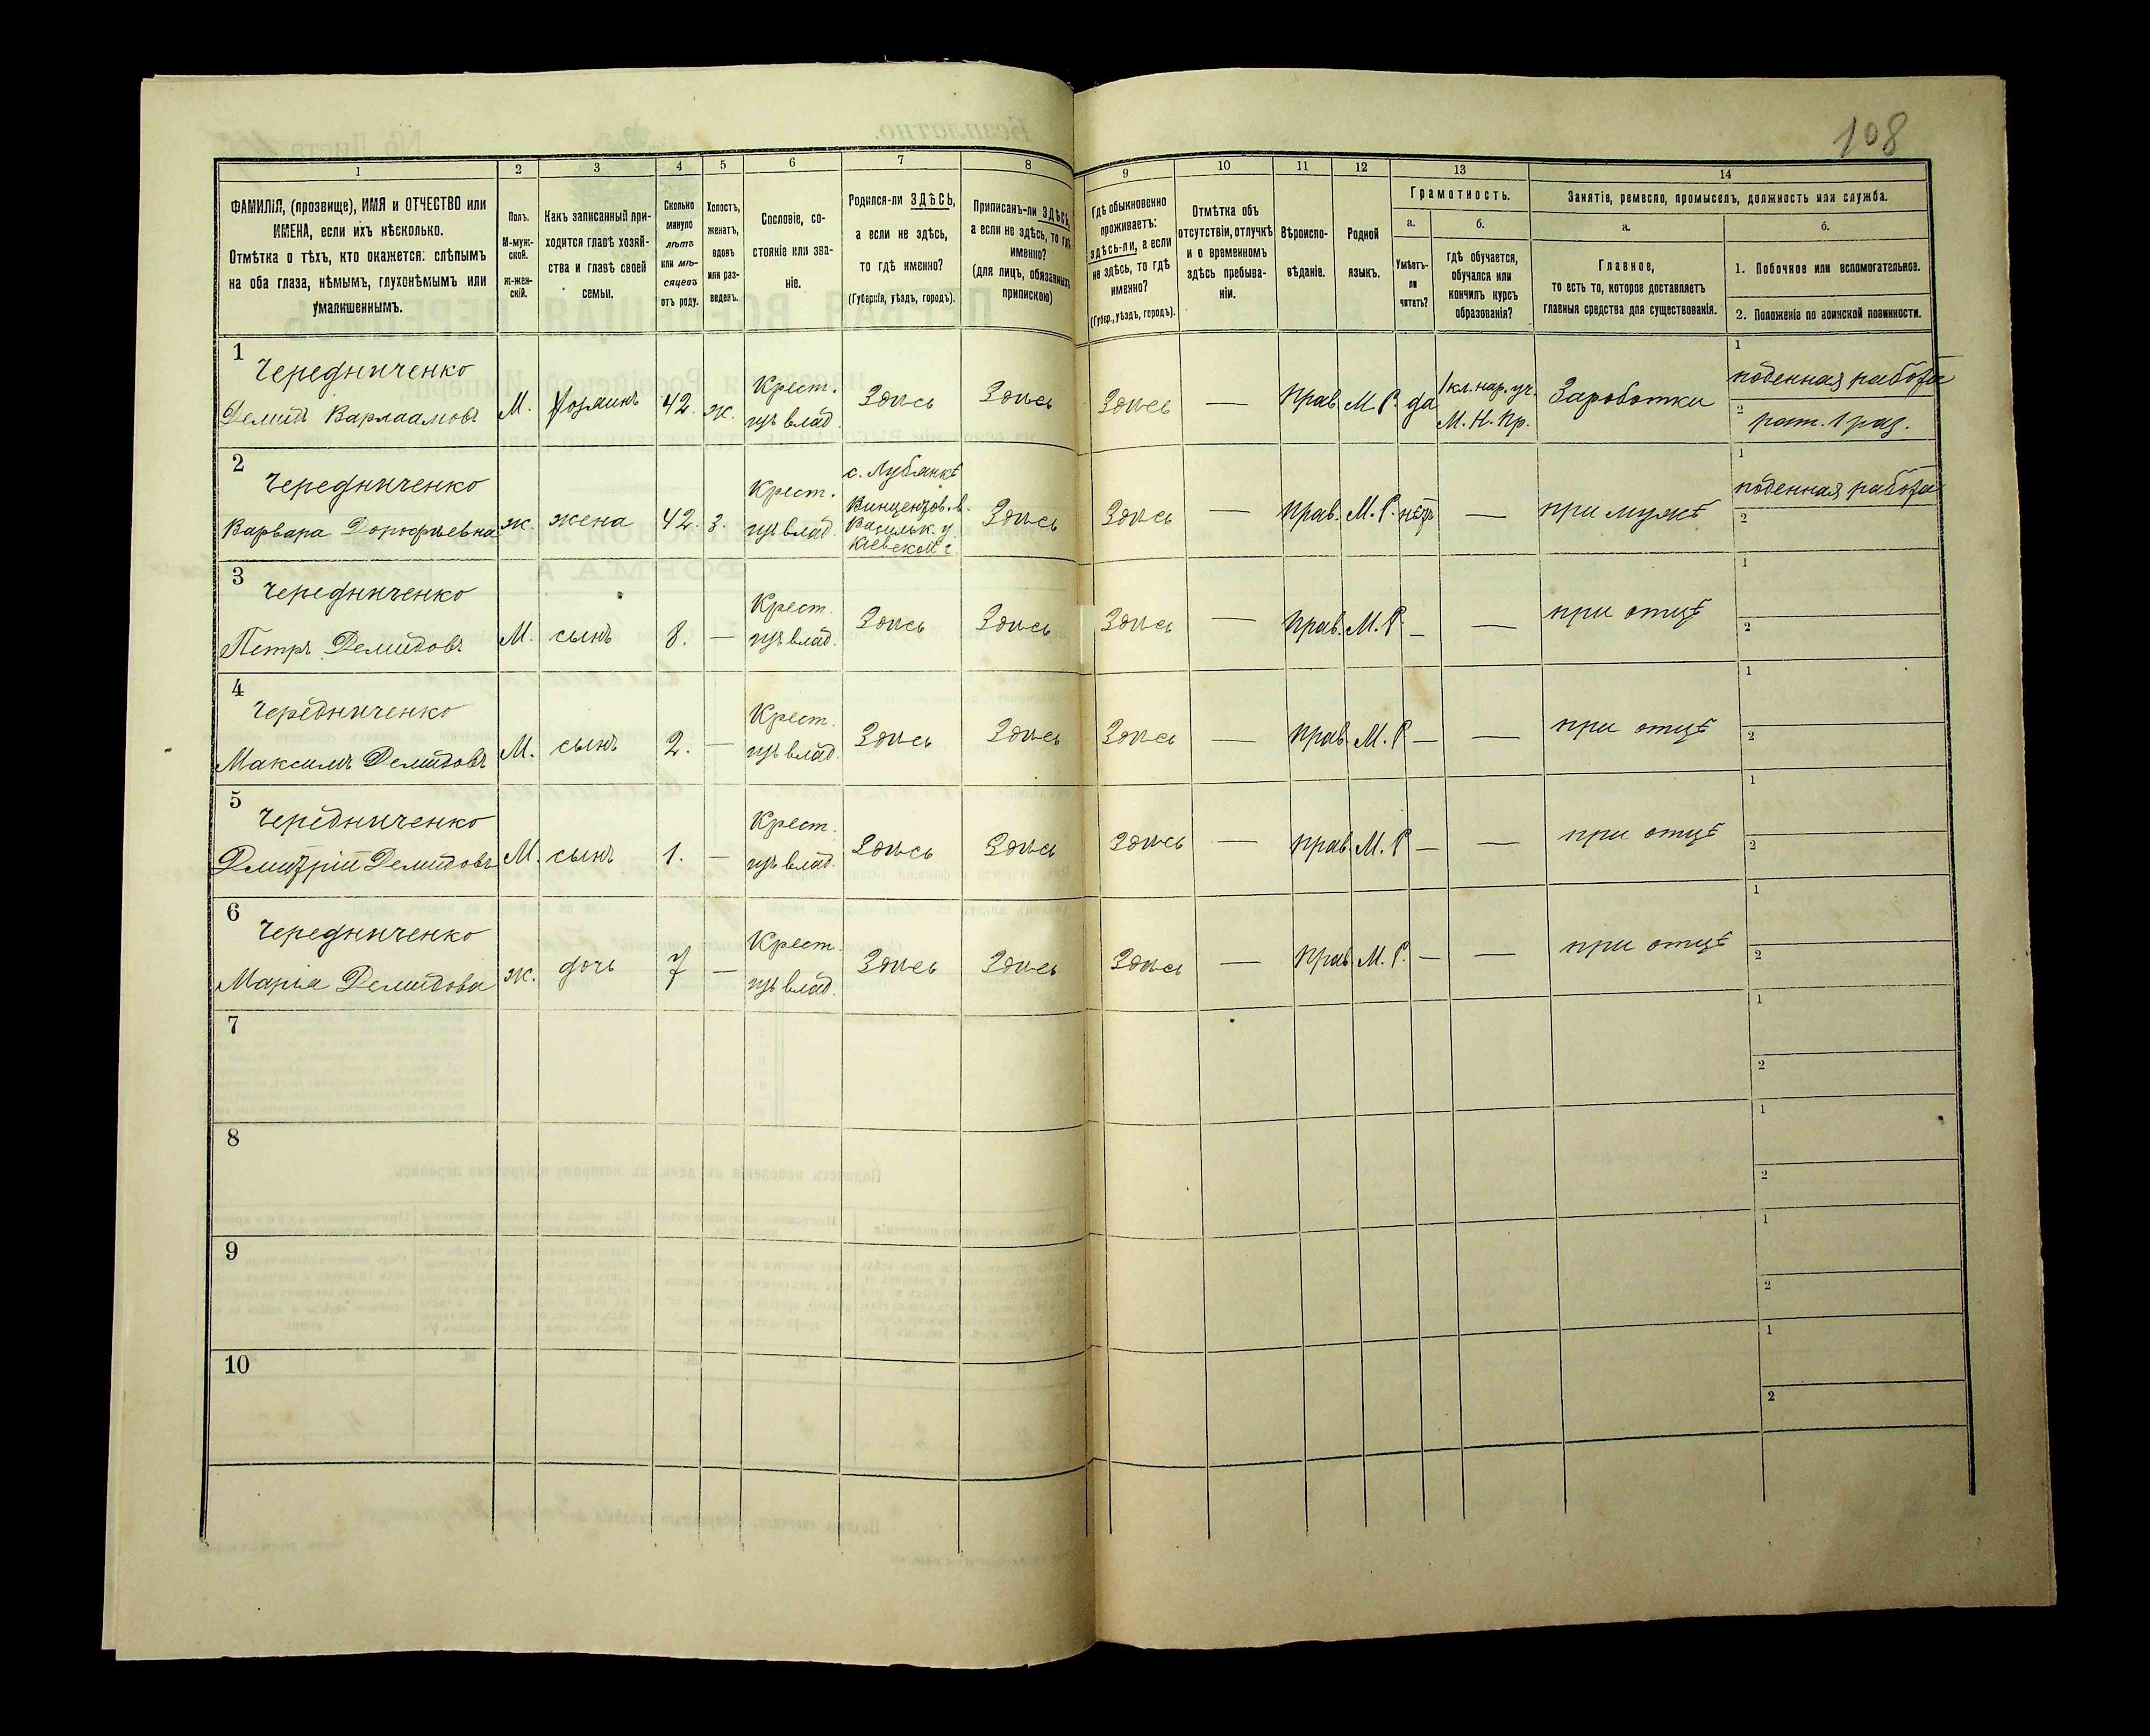 108
1
2
3
4
5
6
7
8
9
10
11
12
13
14
ФАМИЛІЯ, (прозвище), ИМЯ и ОТЧЕСТВО или
ИМЕНА, если ихъ нѣсколько.
Отмѣтка о тѣхъ, кто окажется: слѣпымъ
на оба глаза, нѣмымъ, глухонѣмымъ или
умалишеннымъ.
Полъ.
М-муж-
ской.
ж-жен-
скій.
Какъ записанный при-
ходится главѣ хозяй-
ства и главѣ своей
семьи.
Сколько
минуло
лѣтъ
или мѣ-
сяцевъ
отъ роду.
Холостъ,
женатъ,
вдовъ
или раз-
веденъ.
Сословіе, со-
стояніе или зва-
ніе.
Родился-ли ЗДѢСЬ,
а если не здѣсь,
то гдѣ именно?
(Губернія, уѣздъ, городъ).
Приписанъ-ли ЗДѢСЬ,
а если не здѣсь, то гдѣ
именно?
(для лицъ, обязанныхъ
припискою)
Гдѣ обыкновенно
проживаетъ:
здѣсь-ли, а если
не здѣсь, то гдѣ
именно?
(Губер., уѣздъ, городъ).
Отмѣтка объ
отсутствіи, отлучкѣ
и о временномъ
здѣсь пребыва-
ніи.
Вѣроиспо-
вѣданіе.
Родной
языкъ.
Грамотность.
а.
Умѣетъ-
ли
читать?
б.
Гдѣ обучается,
обучался или
кончилъ курсъ
образованія?
Занятіе, ремесло, промыселъ, должность или служба.
а.
Главное,
то есть то, которое доставляетъ
главныя средства для существованія.
б.
1. Побочное или вспомогательное.
2. Положеніе по воинской повинности.
1
Чередниченко
Демидъ Варлаамовъ
М.
хозяинъ
42.
ж.
Крест.
изъ влад.
Здѣсь
Здѣсь
Здѣсь
—
Прав.
М. Р.
да
1 кл. нар. уч.
М. Н. Пр.
Заработки
1
поденная работа
2
рат. 1 раз.
2
Чередниченко
Варвара Дорофѣевна
ж.
жена
42.
з.
Крест.
изъ влад.
с. Лубянкѣ
Винцентов. в.
Васильк. у.
Кіевской г.
Здѣсь
Здѣсь
—
Прав.
М. Р.
нѣтъ
—
при мужѣ
1
поденная работа
2
3
Чередниченко
Петръ Демидовъ
М.
сынъ
8.
—
Крест.
изъ влад.
Здѣсь
Здѣсь
Здѣсь
—
Прав.
М. Р.
—
—
при отцѣ
1
2
4
Чередниченко
Максимъ Демидовъ
М.
сынъ
2.
—
Крест.
изъ влад.
Здѣсь
Здѣсь
Здѣсь
—
Прав.
М. Р.
—
—
при отцѣ
1
2
5
Чередниченко
Дмитрій Демидовъ
М.
сынъ
1.
—
Крест.
изъ влад.
Здѣсь
Здѣсь
Здѣсь
—
Прав.
М. Р.
—
—
при отцѣ
1
2
6
Чередниченко
Марія Демидова
ж.
дочь
7
—
Крест.
изъ влад.
Здѣсь
Здѣсь
Здѣсь
—
Прав.
М. Р.
—
—
при отцѣ
1
2
7
1
2
8
1
2
9
1
2
10
1
2